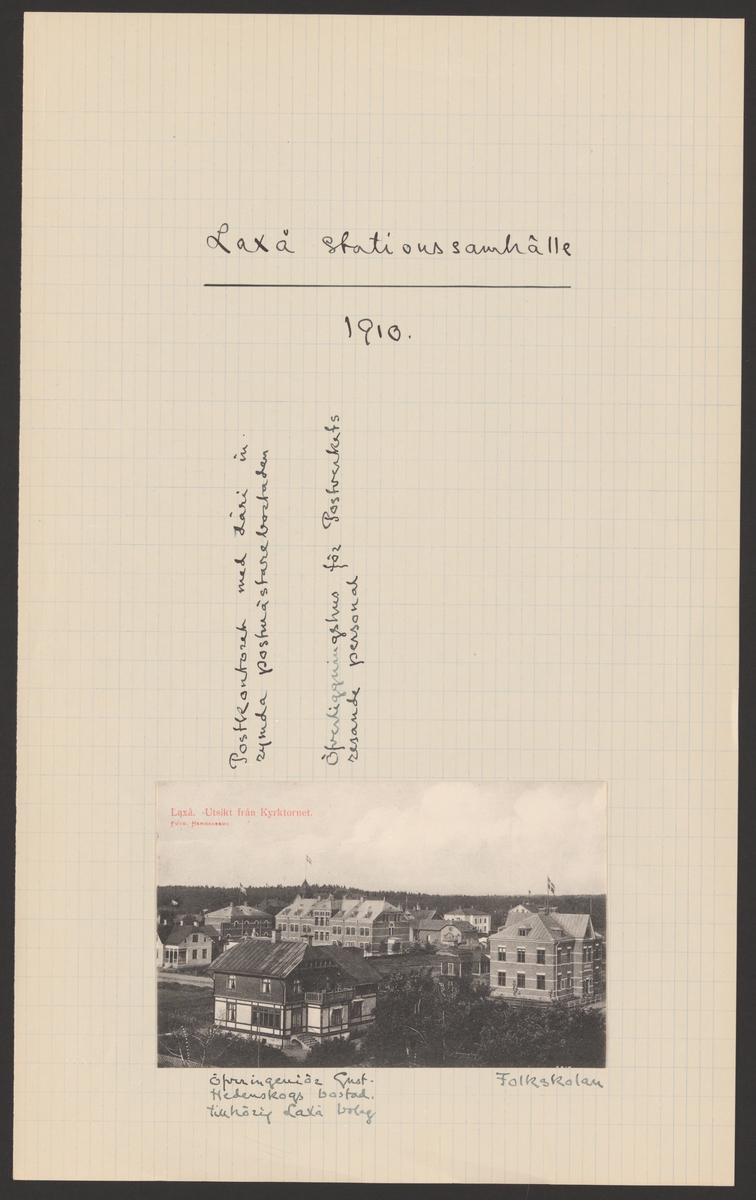 Laxå stationssamhälle
1910.
Postkontoret med däri in-
rymda postmästarebostaden
Öfverliggningshus för Postverkets
resande personal
Laxå. -Utsikt från Kyrktornet.
Foto.
Öfveringeniör Gust.
Hedenskogs bostad.
tillhörig Laxå bolag
Folkskolan